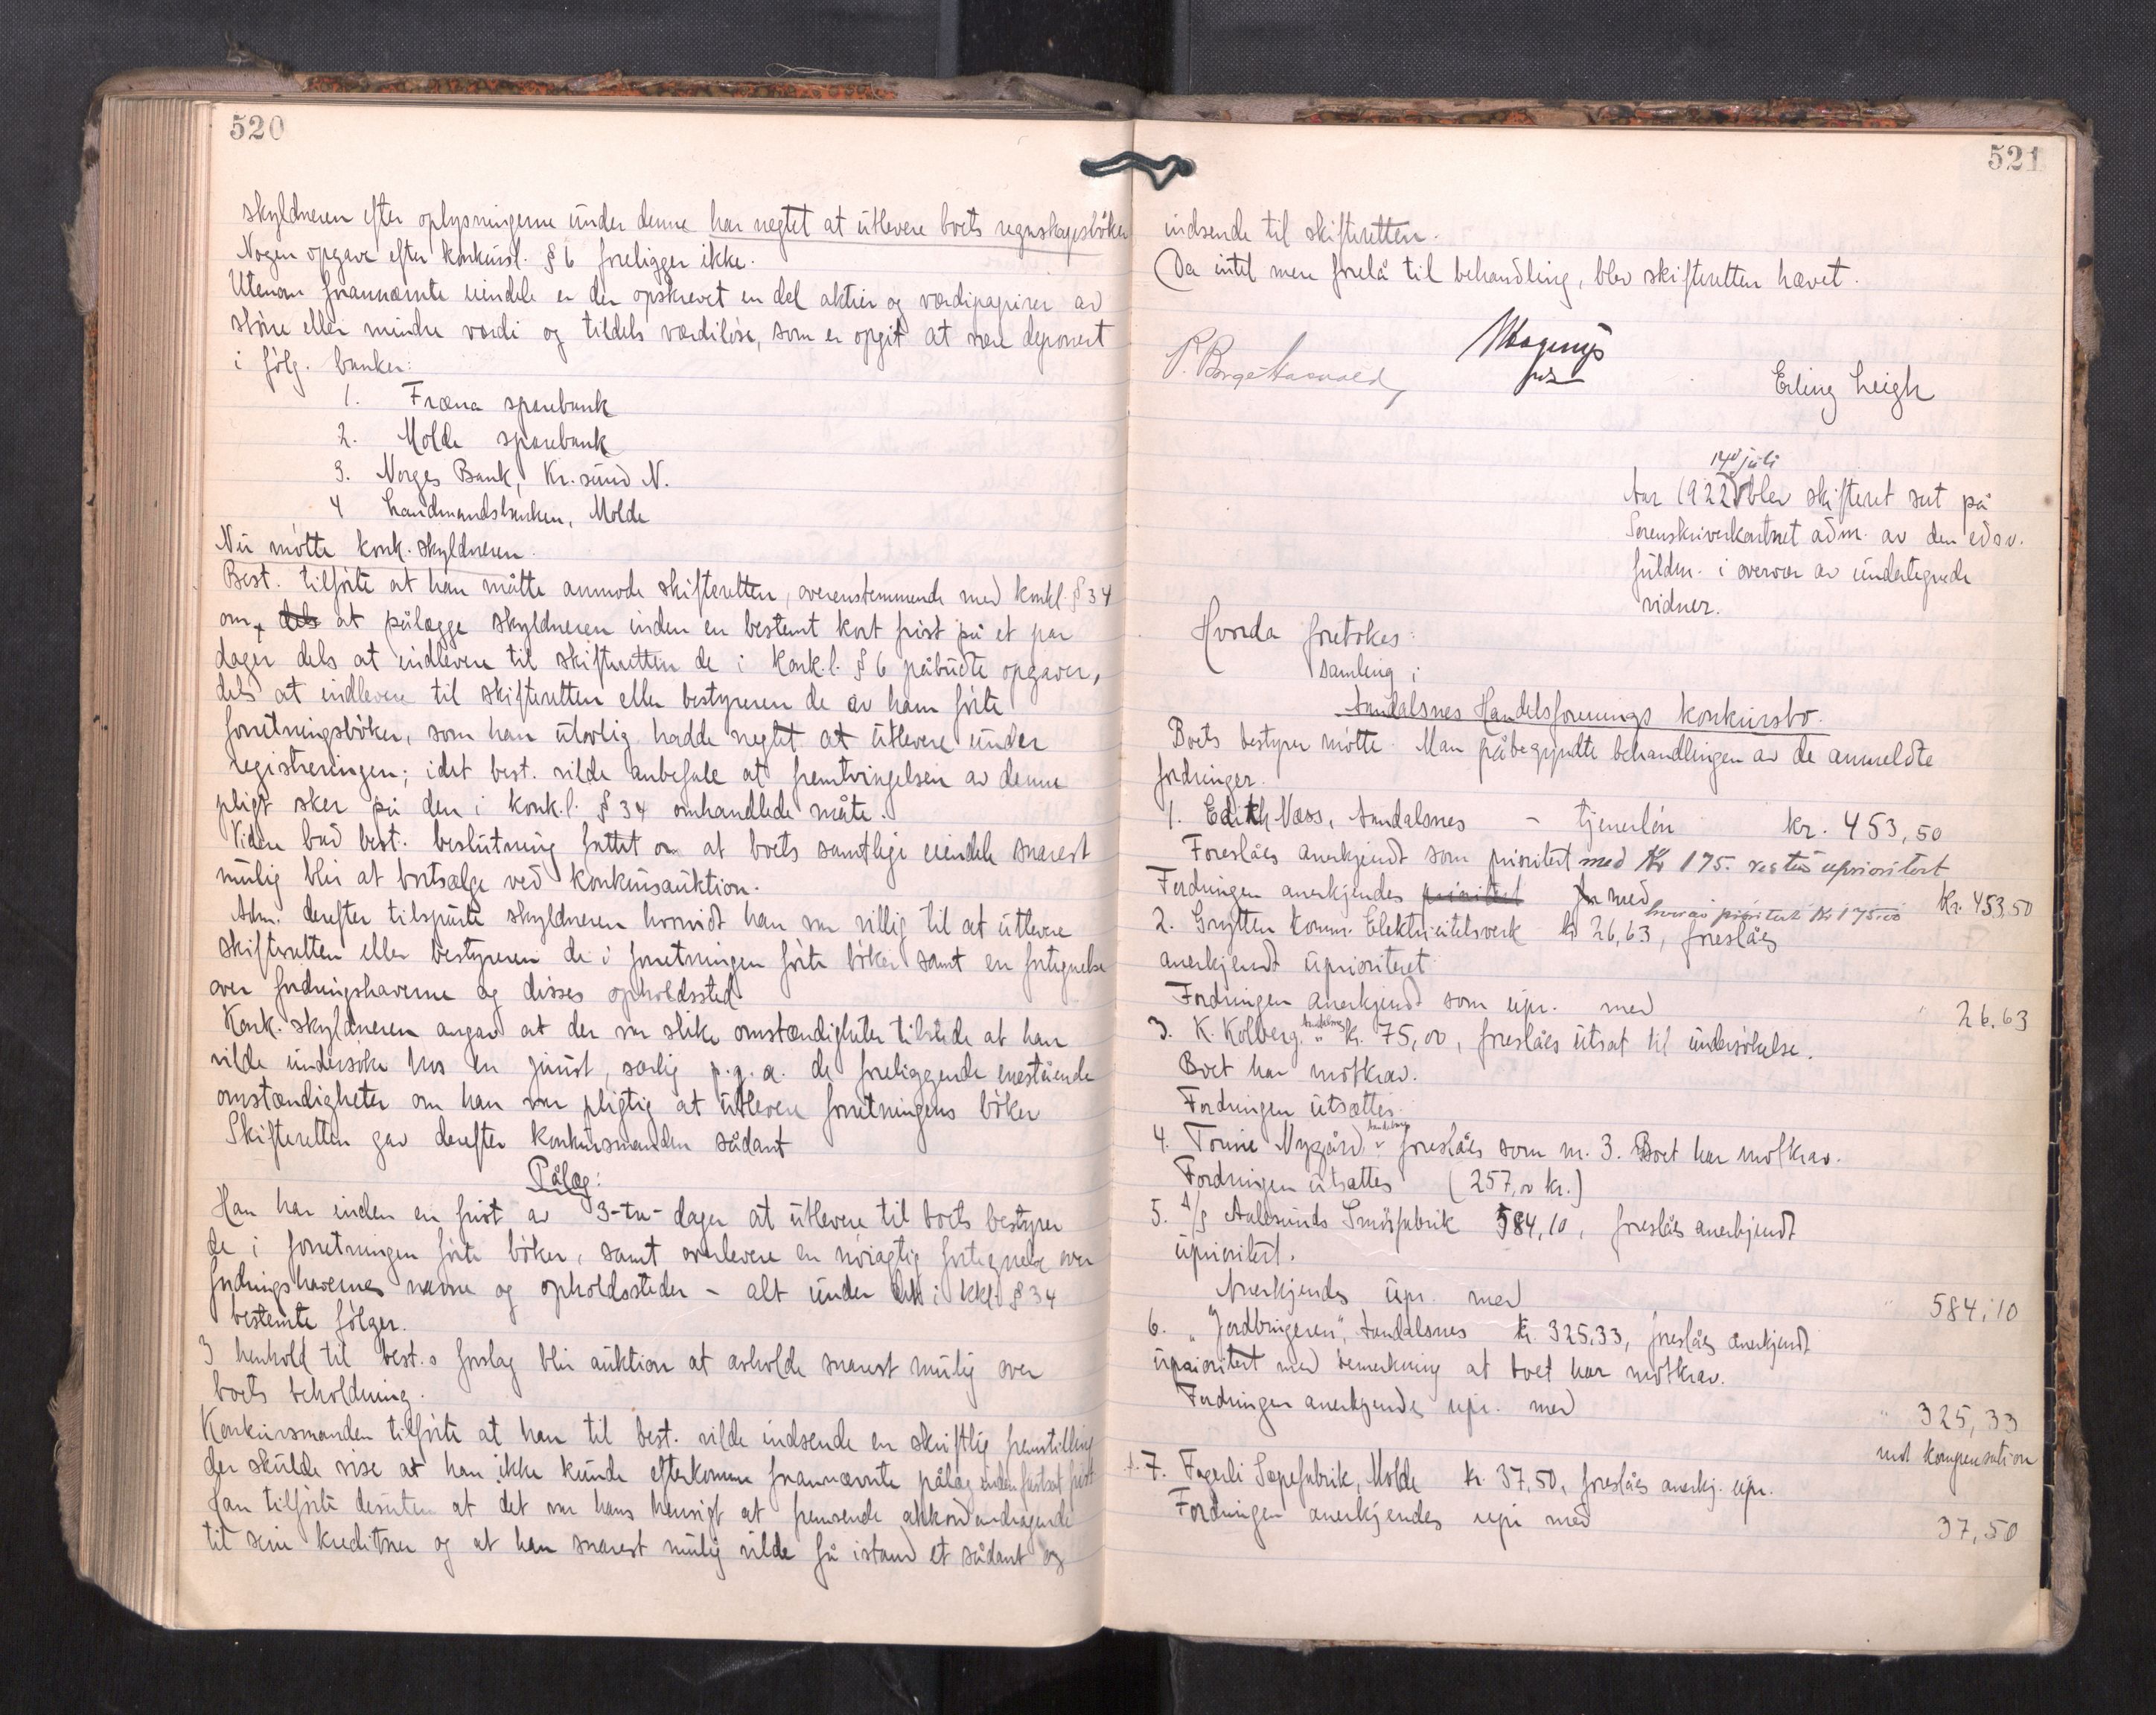 520
skyldneren efter oplysningerne under denne har negtet at utlevere boets regnskapsböker
Nogen opgave efter konkursl. § 6 foreligger ikke.
Utenom framnævnte eiendele er der opskrevet en del aktier og værdipapirer av
større eller mindre værdi og tildels værdiløse, som er opgit at være deponert
i følg. banker:
1. Fræna sparebank
2. Molde sparebank
3. Norges Bank, Kr.sund N.
4 Landmandsbanken, Molde
Nu møtte konk.skyldneren.
Best. tilførte at han måtte anmode skifteretten, overenstemmende med konkl. § 34
om, dels at pålægge skyldneren inden en bestemt kort frist på et par
dager dels at indlevere til skifteretten de i konk.l. § 6 påbudte opgaver,
dels at indlevere til skifteretten eller bestyreren de av ham førte
forretningsböker, som han ulovlig hadde negtet at utlevere under
registreringen; idet best. vilde anbefale at fremtvingelsen av denne
pligt sker på den i konk.l. § 34 omhandlede måte.
Videre bad best. beslutning fattet om at boets samtlige eiendele snarest
mulig blir at bortsælge ved konkursauktion.
Adm. derefter tilspurte skyldneren hvorvidt han var villig til at utlevere
skifteretten eller bestyreren de i forretningen førte böker samt en fortegnelse
over fordringshaverne og disses opholdssted
Konk.skyldneren angav at der var slike omstændigheter tilstede at han
vilde undersøke hos en jurist, særlig p.g.a. de foreliggende enestående
omstændigheter om han var pligtig at utlevere forretningens böker
Skifteretten gav derefter konkursmanden sådant
Pålæg:
Han har inden en frist av 3-tre- dager at utlevere til boets bestyrer
de i forretningen førte böker, samt overlevere en nöiagtig fortegnelse over
fordringshavernes navne og opholdssteder - alt under de i kkl. § 34
bestemte følger.
I henhold til best.s forslag blir auktion at avholde snarest mulig over
boets beholdning.
Konkursmanden tilførte at han til best. vilde indsende en skriftlig fremstilling
der skulde vise at han ikke kunde efterkomme framnævnte pålæg inden fastsat frist
Han tilførte desuten at det var hans hensigt at fremsende akkordandragende
til sine kreditorer og at han snarest mulig vilde få istand et sådant og
521
indsende til skifteretten.
Da intet mere forelå til behandling, blev skifteretten hævet.
Erling Leigh
14d juli
Aar 1922 blev skifteret sat på
Sorenskriverkontoret adm. av den edsv.
fuldm. i overvær av undertegnede
vidner.
Hvorda foretokes:
Samling i
Aandalsnes Handelsforenings konkursbo.
Boets bestyrer møtte. Man påbegyndte behandlingen av de anmeldte
fordringer.
1. Edith Næss, Aandalsnes - tjenerløn kr. 453,50
Foreslåes anerkjendt som prioritert med Kr 175. resten uprioritert
Fordringen anerkjendes prioritert med Kr. 453,50
hvorav prioritert Kr 175,00
2. Grytten Komm. Elektricitetsverk kr 26,63, foreslåes
anerkjendt uprioriteret
Fordringen anerkjendt som upr. med " 26.63
3. K. Kolberg, Aandalsnes " kr. 75,00, foreslåes utsat til undersøkelse.
Boet har motkrav.
Fordringen utsættes.
4. Tomine Nygård, Aandalsnes foreslåes som nr. 3. Boet har motkrav.
Fordringen utsættes (257,00 kr.)
5. A/S Aalesunds Smørfabrik 584,10, foreslåes anerkjendt
uprioritert.
Anerkjendes upr. med " 584,10
6. "Jordbringeren", Aandalsnes kr. 325,33, foreslåes anerkjendt
uprioritert med bemerkning at boet har motkrav.
Fordringen anerkjendes upr. med " 325,33
mot kompensation
7. Fagerli Sæpefabrik, Molde kr. 37,50, foreslåes anerkj. upr.
Fordringen anerkjendes upr med 37,50